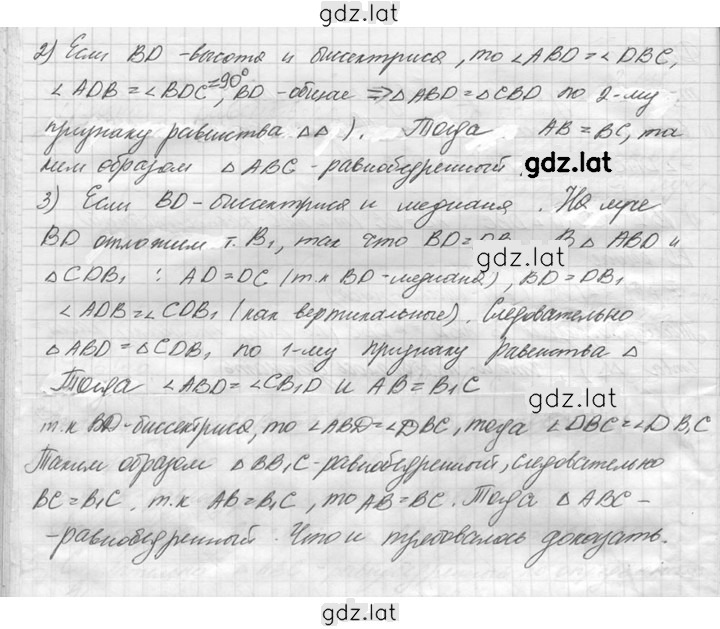 gdz.lat
2) Если BD - высота и биссектриса, то ∠ABD = ∠DBC,
∠ADB = ∠BDC =90°, BD - общая ⇒ △ABD = △CBD по 2-му
признаку равенства △△). Тогда AB = BC, та
ким образом △ABC - равнобедренный.
gdz.lat
3) Если BD - биссектриса и медиана. На луче
BD отложим т. B₁, так что BD = DB₁. В △ABD и
gdz.lat
△CDB₁ : AD = DC (т.к BD - медиана), BD = DB₁
∠ADB = ∠CDB₁ (как вертикальные). Следовательно
△ABD = △CDB₁ по 1-му признаку равенства △
Тогда ∠ABD = ∠CB₁D и AB = B₁C
gdz.lat
т.к BD - биссектриса, то ∠ABD = ∠DBC, тогда ∠DBC = ∠DB₁C
Таким образом △BB₁C - равнобедренный, следовательно
BC = B₁C. т.к AB = B₁C, то AB = BC. Тогда △ABC -
- равнобедренный. Что и требовалось доказать.
gdz.lat